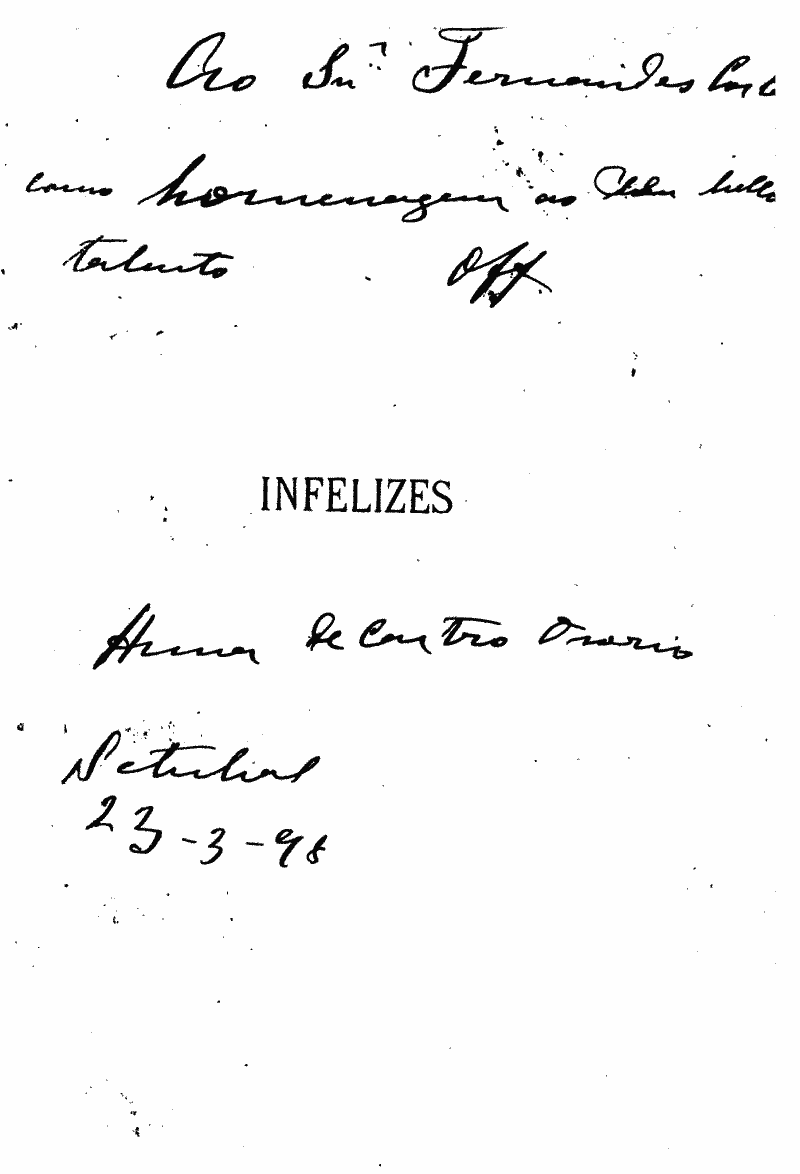 Ao Snr. Fernandes Cost
como homenagem ao seu bello
talento Off
INFELIZES
Anna de Castro Osorio
Setubal
23-3-98